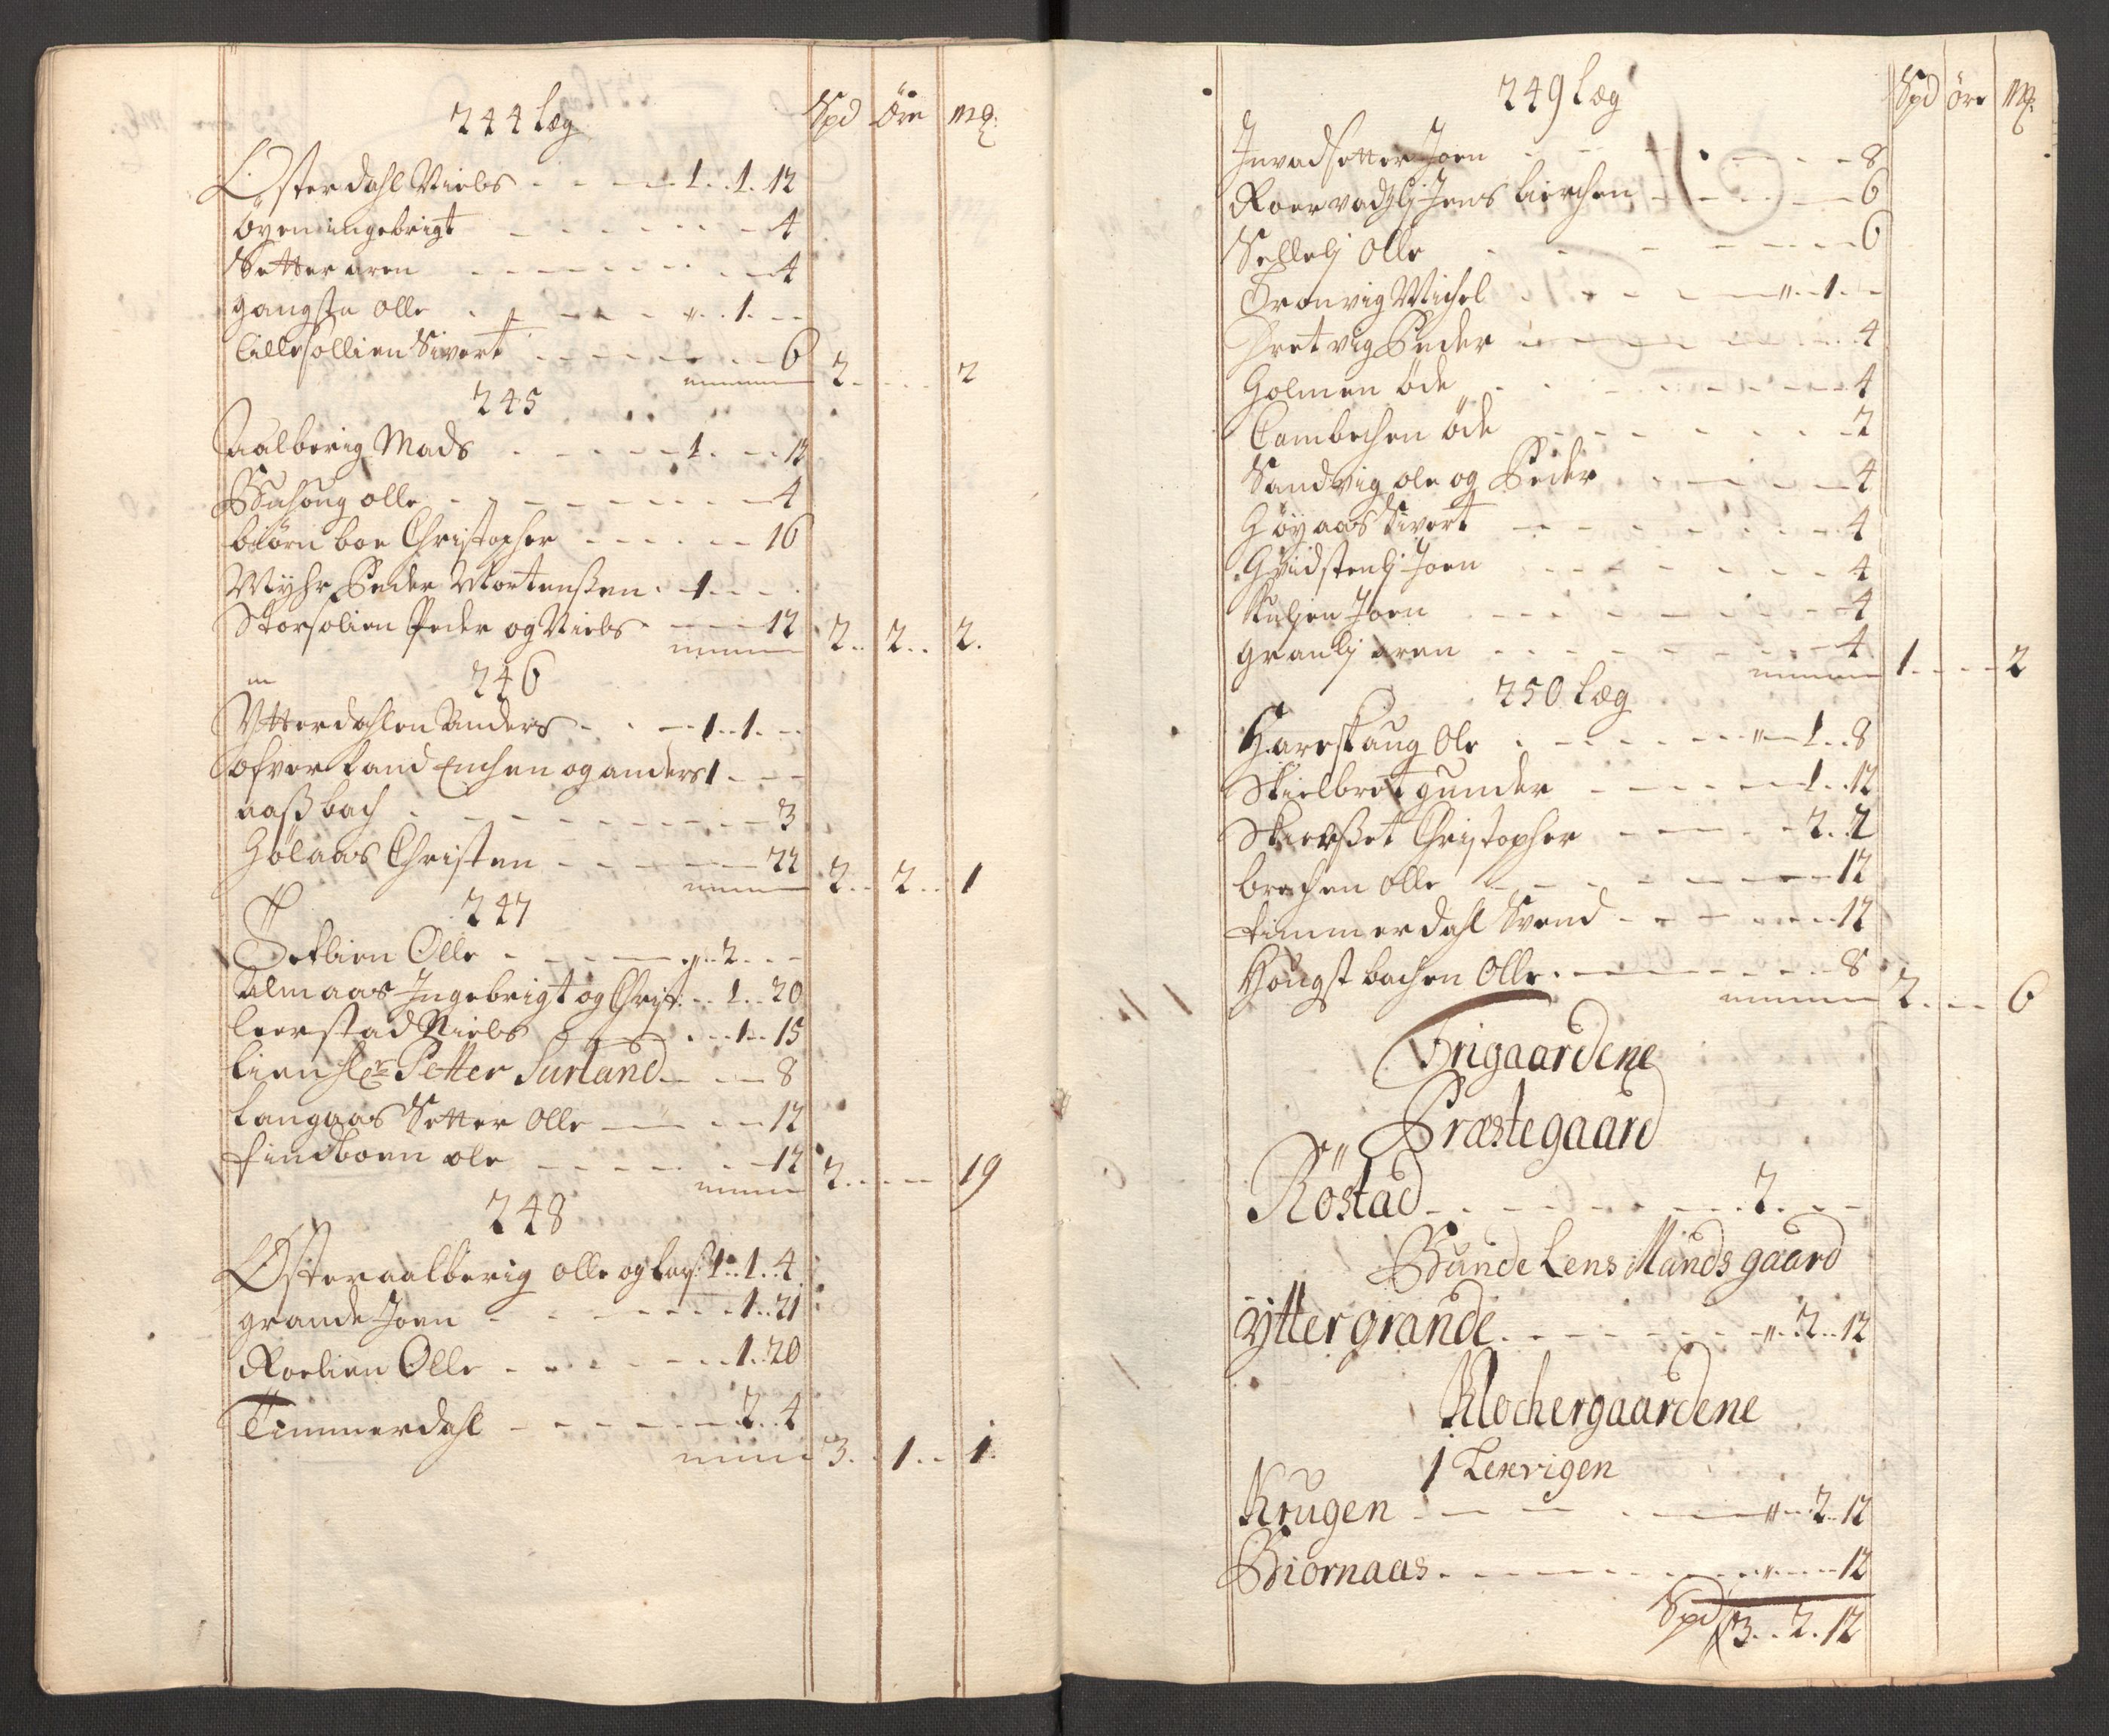 244 læg Spd öre mg:
Österdahl Niels - - - 1. 1. 12
öyen ingebrigt - - - 4
Setter aren - - - 4
gangstu olle - - - ". 1. - -
Lillesollien Sivert - - - 6
2 - - - 2
245
aalberig Mads - - - 1. - - 12
Buhoug olle - - - 4
biörn boe Christopher - - - 16
Myhr Peder Mortenßen - 1 - - -
Storsolien Peder og Niels - - - 12
2 - 2 - 2.
246
Ytterdahlen Anders - - - 1. 1. - -
ofver Land Enchen og anders 1 - - -
aaßbach - - - 3
Hölaas Christen - - - 22
2 - 2 - 1
247
Setlien Olle - - - ". 2 - - -
almaas Ingebrigt og Christ: - - 1 - 20
Leerstad Niels - - - 1 - 15
Lien Hr Petter Surland - - - 8
Langaas Setter Olle - - - 12
findboen ole - - - 12
2 - - - 19
248
Østeraalberig olle og Lars 1. 1. 4
grande Joen - - - 1. 21
Roelien Olle - - - 1. 20
Timmerdahl - - - 2. 4
3. 1. 1.
249 læg Spd öre mg:
Invadsetter Joen - - - 8
Roervadglj Jens bierchen - - - 6
Sellelj Olle - - - 6
Tronvig Michel - - - ". 1. -
Hretvig Peder - - - 4
Holmen öde - - - 4
Cambechen öde - - - 2
Sandvig ole og Peder - - - 4
Höyaas Sivert - - - 4
Hvidstenlj Joen - - - 4
Kuljen Joen - - - 4
granlj aren - - - 4
1 - - - 2
250 læg
Harrskaug Ole - - - " - 1 - 8
Skielbret gunder - - - 1. 12
Skierßet Christopher - - - 2. 2
brechen olle - - - 12
timmerdahl Svend - - - 12
Hougst bachen Olle - - - 8
2 - - - 6
Frigaardene
Præstegaard
Röstad - - - 2. - - -
Bunde Lens Mands gaard
ytter grande - - - ". 2. 12
Klochergaardene
1 Lexvigen
Krugen - - - " - 2 - 12
Biornaas - - - " - - 12
Spd 3. 2. 12